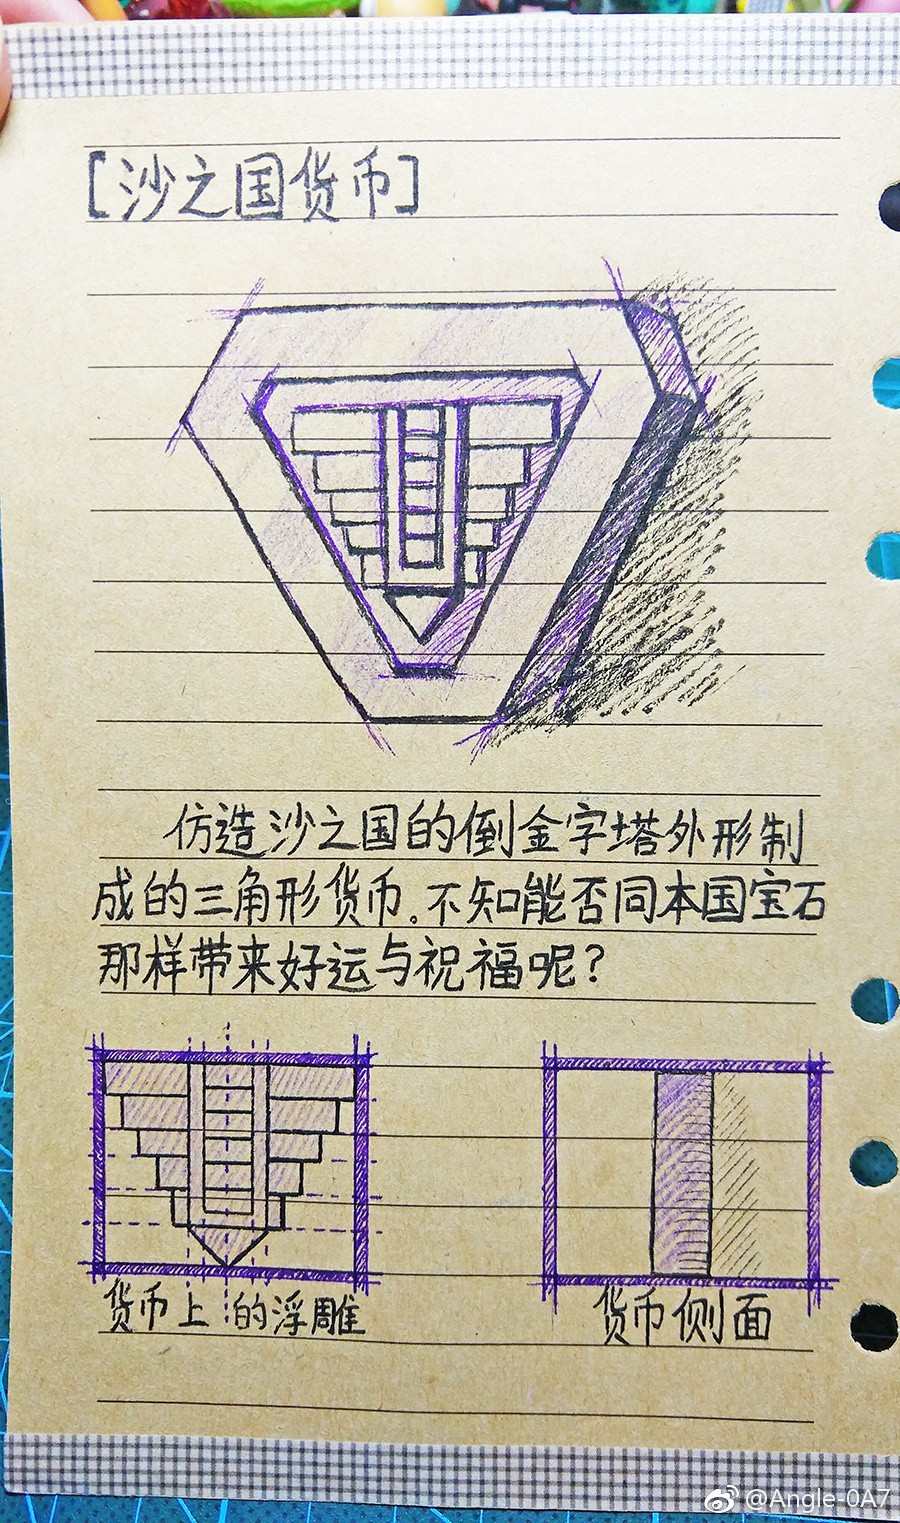 [沙之国货币]
仿造沙之国的倒金字塔外形制
成的三角形货币。不知能否同本国宝石
那样带来好运与祝福呢?
货币上的浮雕
货币侧面
@Angle-0A7